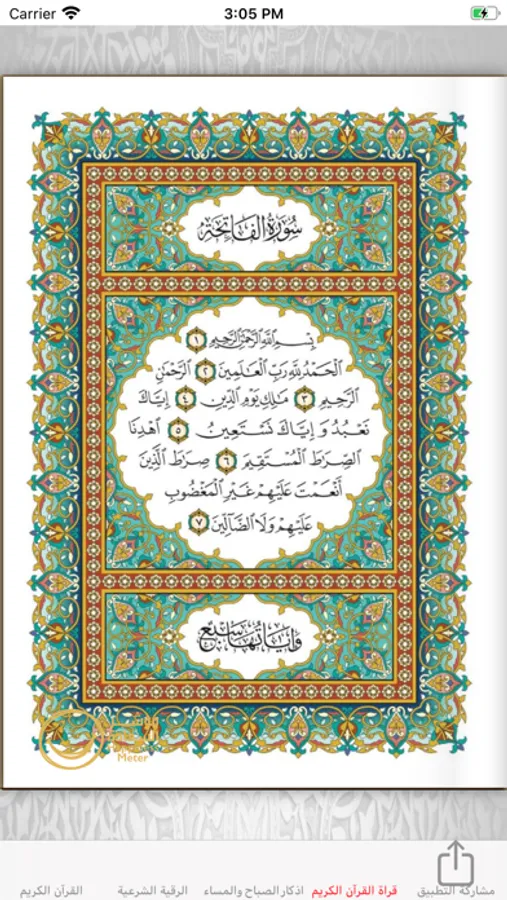 Carrier 3:05 PM
سُورَةُ الفَاتِحَةِ
بِسْمِ اللَّهِ الرَّحْمَٰنِ الرَّحِيمِ ١
الْحَمْدُ لِلَّهِ رَبِّ الْعَالَمِينَ ٢ الرَّحْمَٰنِ
الرَّحِيمِ ٣ مَالِكِ يَوْمِ الدِّينِ ٤ إِيَّاكَ
نَعْبُدُ وَإِيَّاكَ نَسْتَعِينُ ٥ اهْدِنَا
الصِّرَاطَ الْمُسْتَقِيمَ ٦ صِرَاطَ الَّذِينَ
أَنْعَمْتَ عَلَيْهِمْ غَيْرِ الْمَغْضُوبِ
عَلَيْهِمْ وَلَا الضَّالِّينَ ٧
وَآيَاتُهَا سَبْعٌ
Meter
مشاركة التطبيق قراة القرآن الكريم اذكار الصباح والمساء الرقية الشرعية القرآن الكريم